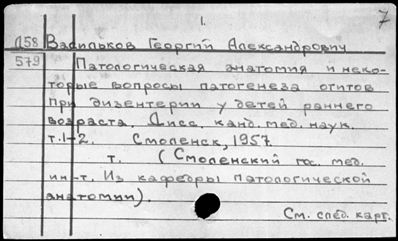 1.
7
Д58 Васильков Георгий Александрович
579 Патологическая анатомия и неко-
торые вопросы патогенеза отитов
при дизентерии у детей раннего
возраста. Дисс. канд. мед. наук.
т. 1-2. Смоленск, 1957.
т. (Смоленский гос. мед.
ин-т. Из кафедры патологической
анатомии).
См. спец. карт.